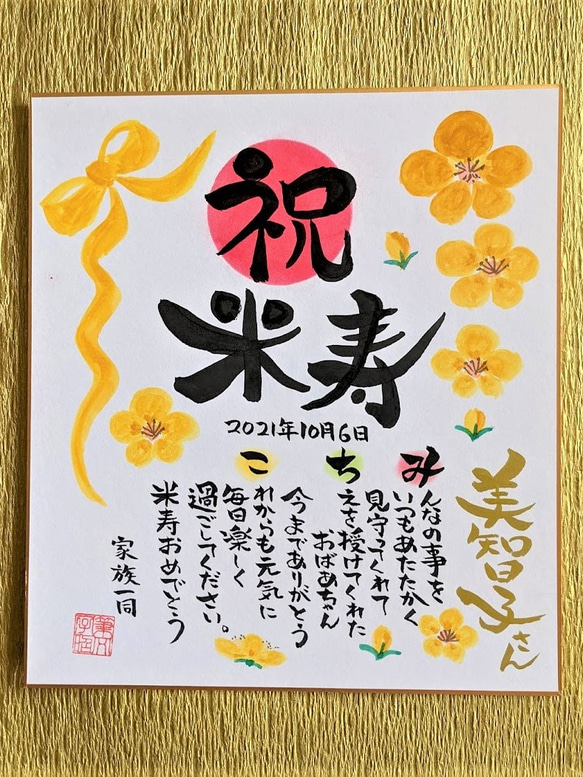 祝
米寿
2021年10月6日
美智子さん
みんなの事を
いつもあたたかく
見守ってくれて
ちえを授けてくれた
おばあちゃん
今までありがとう
これからも元気に
毎日楽しく
過ごしてください。
米寿おめでとう
家族一同